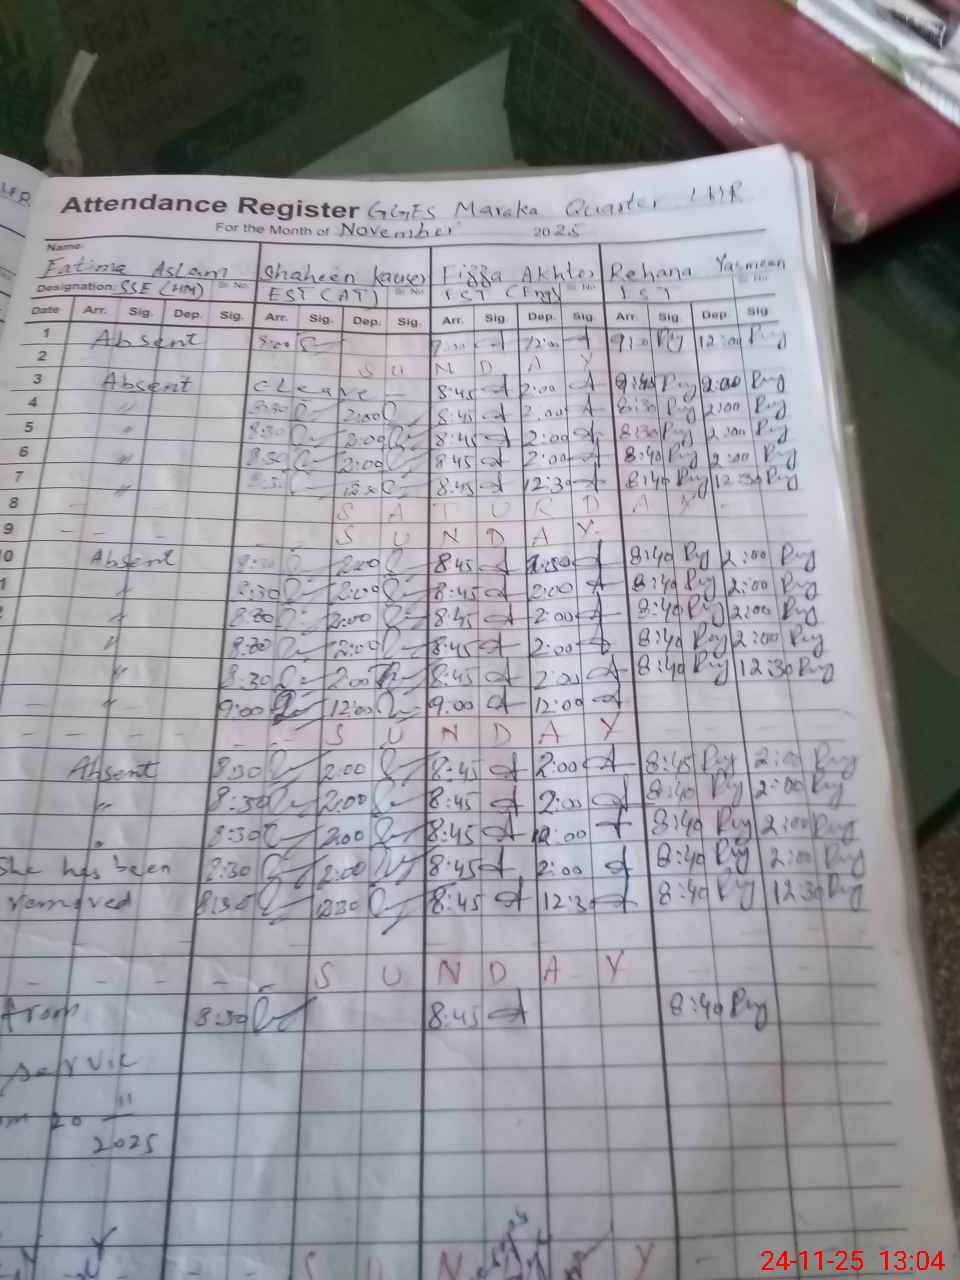 Attendance Register GGES Maraka Quarter LHR
For the Month of November 2025
Name:
Fatima Aslam Shaheen kauser Fizza Akhter Rehana Yasmeen
Designation: SSE (HM) EST (AT) EST (Eng) EST
Date Arr. Sig. Dep. Sig. Arr. Sig. Dep. Sig. Arr. Sig. Dep. Sig. Arr. Sig. Dep. Sig.
1 Absent 8:00 12:00
2 S U N D A Y
3 Absent C Leave 8:45 2:00 8:45 2:00
4 " 8:30 2:00 8:45 2:00 8:30 2:00
5 " 8:30 2:00 8:45 2:00 8:30 2:00
6 " 8:30 2:00 8:45 2:00 8:40 2:00
7 " 8:30 12:30 8:45 12:30 8:40 12:30
8 S A T U R D A Y
9 S U N D A Y
0 Absent 8:30 2:00 8:45 8:40 2:00
1 " 8:30 2:00 8:45 2:00 8:40 2:00
" 8:30 2:00 8:45 2:00 8:40 2:00
" 8:30 2:00 8:45 2:00 8:40 2:00
" 8:30 2:00 8:45 2:00 8:40 12:30
" 9:00 12:00 9:00 12:00
S U N D A Y
Absent 8:30 2:00 8:45 2:00 8:45 2:00
" 8:30 2:00 8:45 2:00 8:40 2:00
" 8:30 2:00 8:45 2:00 8:40 2:00
She has been 8:30 2:00 8:45 2:00 8:40 2:00
removed 8:30 12:30 8:45 12:30 8:40 12:30
S U N D A Y
from 8:30 8:45 8:40
servic
20 11
2025
S U N Y
24-11-25 13:04